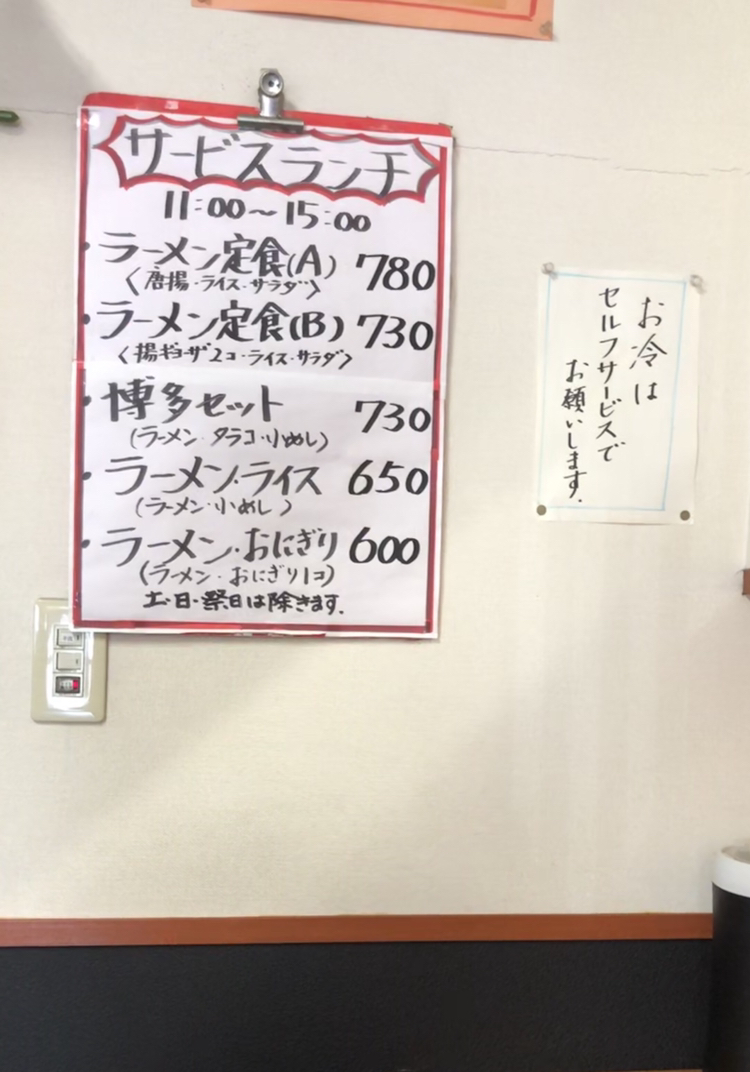 サービスランチ
11:00～15:00
・ラーメン定食(A) 780
〈唐揚・ライス・サラダ〉
・ラーメン定食(B) 730
〈揚ギョーザ2コ・ライス・サラダ〉
・博多セット 730
(ラーメン・タラコ・小めし)
・ラーメン・ライス 650
(ラーメン・小めし)
・ラーメン・おにぎり 600
(ラーメン・おにぎり1コ)
土・日・祭日は除きます.
お冷は
セルフサービスで
お願いします.